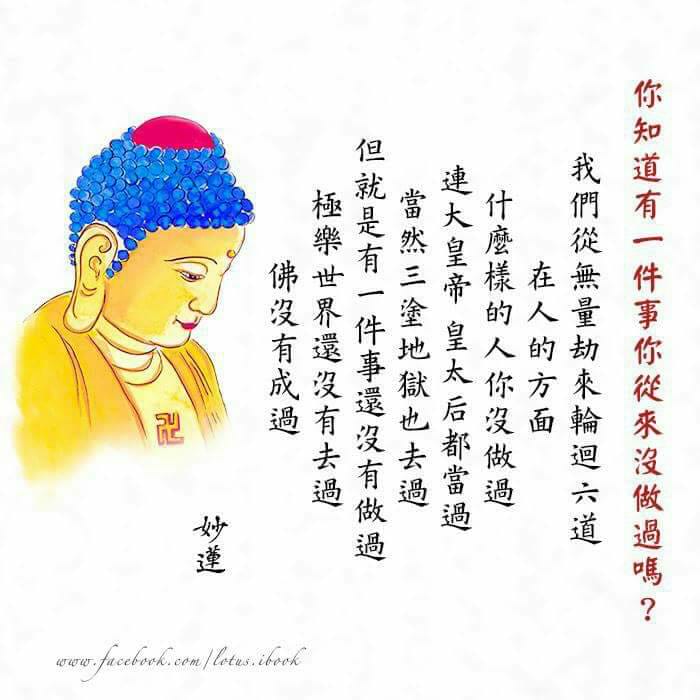 你知道有一件事你從來沒做過嗎？
我們從無量劫來輪迴六道
在人的方面
什麼樣的人你沒做過
連大皇帝 皇太后都當過
當然三塗地獄也去過
但就是有一件事還沒有做過
極樂世界還沒有去過
佛沒有成過
妙蓮
卍
www.facebook.com/lotus.ibook